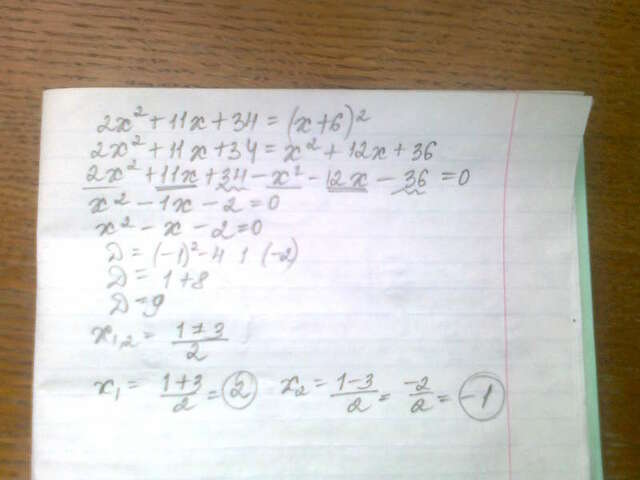 2x² + 11x + 34 = (x+6)²
2x² + 11x + 34 = x² + 12x + 36
2x² + 11x + 34 - x² - 12x - 36 = 0
x² - 1x - 2 = 0
x² - x - 2 = 0
D = (-1)² - 4 1 (-2)
D = 1 + 8
D = 9
x₁,₂ = (1±3)/2
x₁ = (1+3)/2 = 2 x₂ = (1-3)/2 = -2/2 = -1